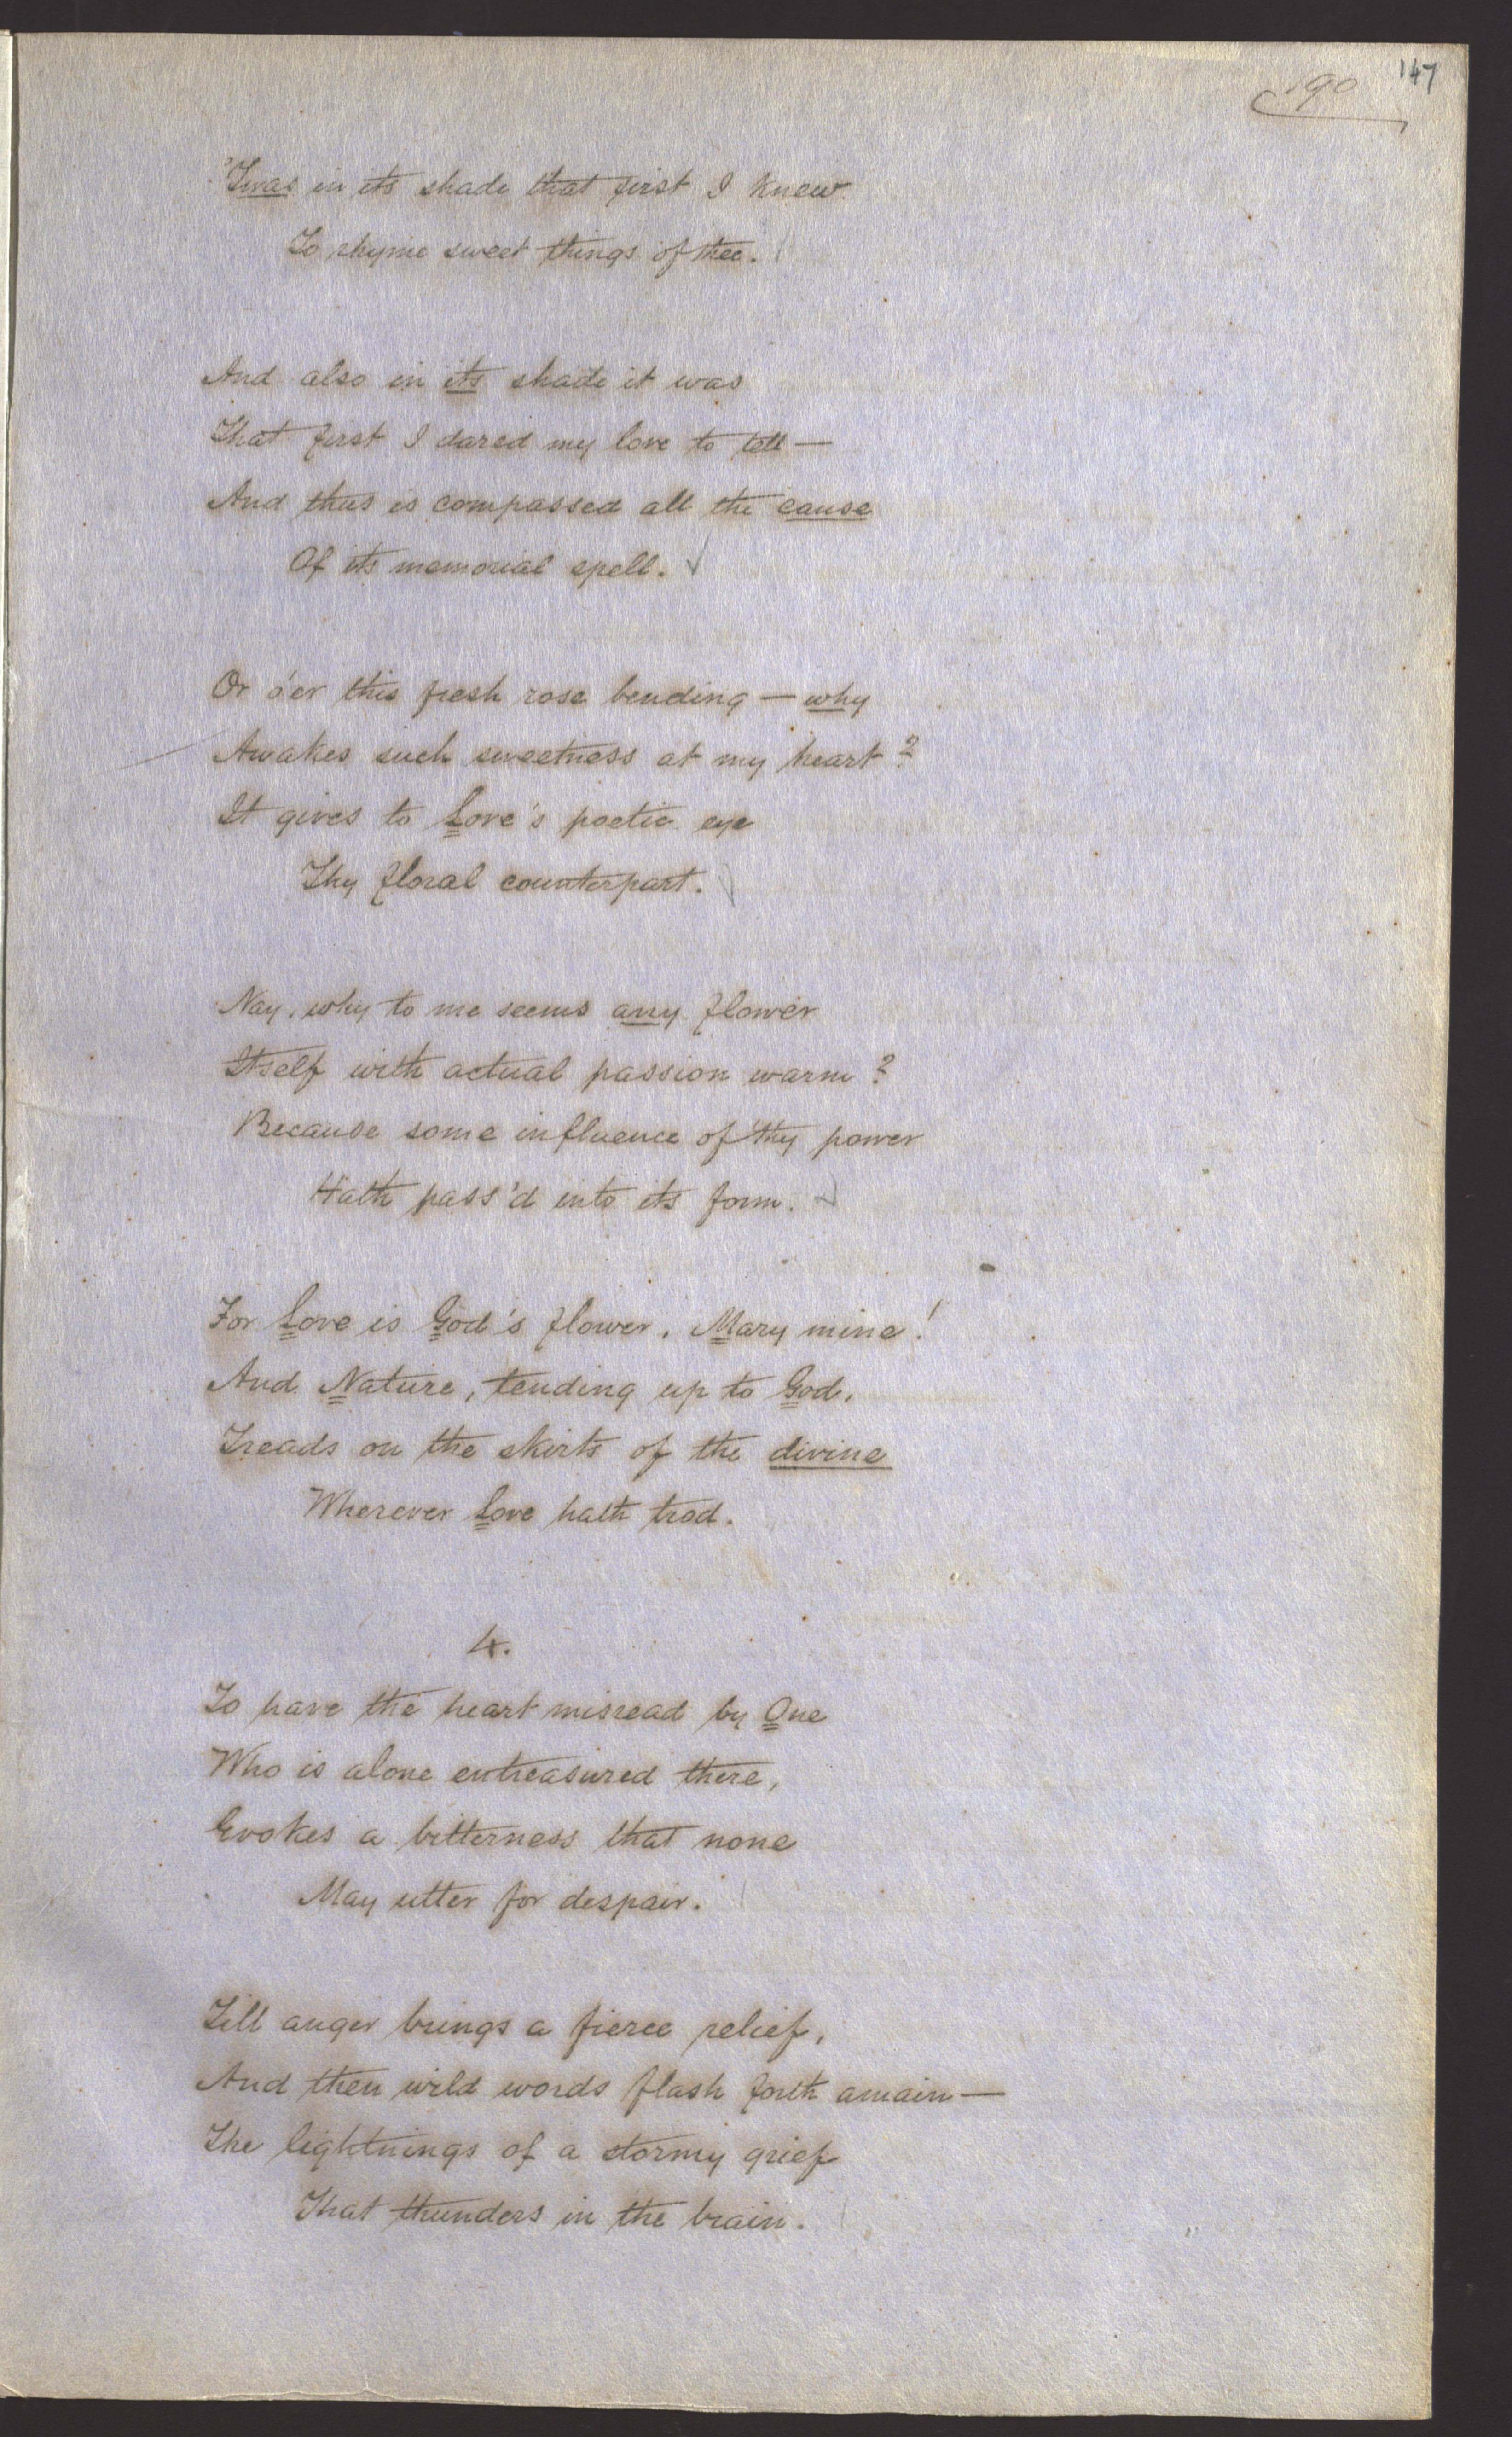 190
147
'Twas in its shade that first I knew
To rhyme sweet things of thee.
And also in its shade it was
That first I dared my love to tell —
And thus is compassed all the cause
Of its memorial spell.
Or o'er this fresh rose bending — why
Awakes such sweetness at my heart?
It gives to Love's poetic eye
Thy floral counterpart.
Nay, why to me seems any flower
Itself with actual passion warm?
Because some influence of thy power
Hath pass'd into its form.
For Love is God's flower, Mary mine!
And Nature, tending up to God,
Treads on the skirts of the divine
Wherever Love hath trod.
4.
To have the heart misread by One
Who is alone entreasured there,
Evokes a bitterness that none
May utter for despair.
Till anger brings a fierce relief,
And then wild words flash forth amain —
The lightnings of a stormy grief
That thunders in the brain.